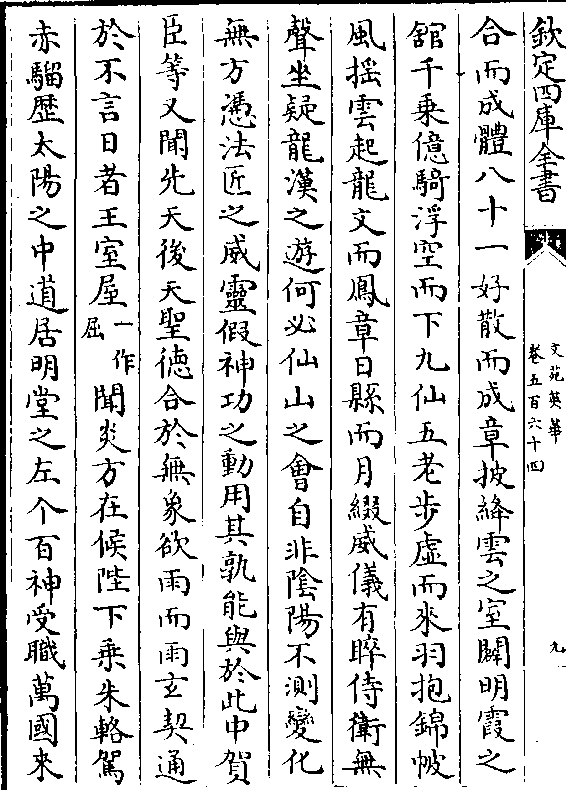 欽定四庫全書
文苑英華
卷五百六十四
九
合而成體八十一好散而成章披絳雲之室闢明霞之
舘千乗億騎浮空而下九仙五老步虚而來羽抱錦帔
風揺雲起龍文而鳳章日縣而月綴威儀有睟侍衛無
聲坐疑龍漢之遊何必仙山之會自非陰陽不測變化
無方憑法匠之威靈假神功之動用其孰能與於此中賀
臣等又聞先天後天聖徳合於無象欲雨而雨玄契通
於不言日者王室屋一作屈聞炎方在候陛下乗朱輅駕
赤騮歴太陽之中道居明堂之左个百神受職萬國來